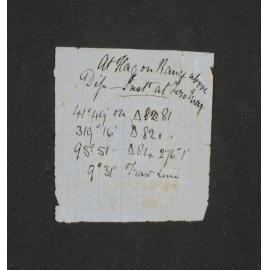 At Flag on Range above
Dip - Inst at Zero Mag
41° 49' on Δ 81
319° 16' Δ 82
95° 51 - Δ 84 276° 1'
9° 31' Trav Line